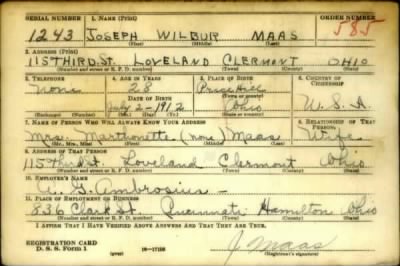 SERIAL NUMBER 1. NAME (Print) ORDER NUMBER
1243 JOSEPH WILBUR MAAS 585
(First) (Middle) (Last)
2. ADDRESS (Print)
115 THIRD. ST. LOVELAND CLERMONT OHIO
(Number and street or R. F. D. number) (Town) (County) (State)
3. TELEPHONE 4. AGE IN YEARS 5. PLACE OF BIRTH 6. COUNTRY OF CITIZENSHIP
None 28 Price Hill
DATE OF BIRTH (Town or county)
July 2-1912 Ohio U.S.A.
(Exchange) (Number) (Mo.) (Day) (Yr.) (State or country)
7. NAME OF PERSON WHO WILL ALWAYS KNOW YOUR ADDRESS 8. RELATIONSHIP OF THAT PERSON
Mrs. (none) Maas Wife
(Mr., Mrs., Miss) (First) (Middle) (Last)
9. ADDRESS OF THAT PERSON
115 Third St. Loveland Clermont Ohio
(Number and street or R. F. D. number) (Town) (County) (State)
10. EMPLOYER'S NAME
A. G. Ambrosius -
11. PLACE OF EMPLOYMENT OR BUSINESS
836 Clark St. Cincinnati Hamilton Ohio
(Number and street or R. F. D. number) (Town) (County) (State)
I AFFIRM THAT I HAVE VERIFIED ABOVE ANSWERS AND THAT THEY ARE TRUE.
REGISTRATION CARD
D. S. S. Form 1 (over) J. Maas
(Registrant's signature)